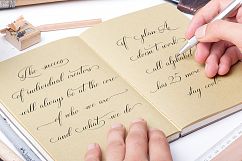 The success
of individual creators
will always be at the core
of who we are
and what we do
If plan A
doesn't work
all alphabet
has 25 more
stay cool